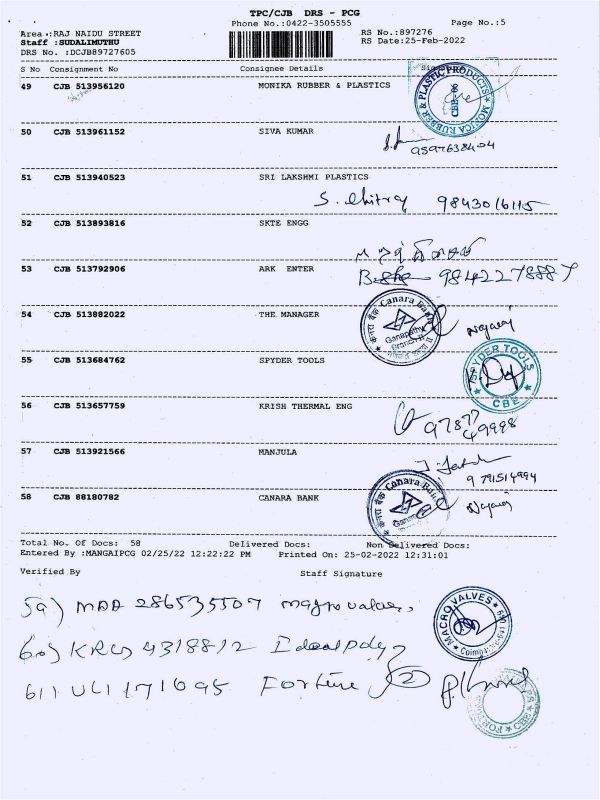 TPC/CJB DRS - PCG
Phone No.:0422-3505555
Page No.:5
Area .:RAJ NAIDU STREET
RS No.:897276
Staff :SUDALIMUTHU
RS Date:25-Feb-2022
DRS No. :DCJB89727605
S No Consignment No Consignee Details
49 CJB 513956120 MONIKA RUBBER & PLASTICS
MONICA RUBBER & PLASTIC PRODUCTS
50 CJB 513961152 SIVA KUMAR
9597638404
51 CJB 513940523 SRI LAKSHMI PLASTICS
S. Chitra 9843016115
52 CJB 513893816 SKTE ENGG
53 CJB 513792906 ARK ENTER
9842278887
54 CJB 513882022 THE MANAGER
केनरा बैंक Canara Bank
Ganapathy
Branch II
55 CJB 513684762 SPYDER TOOLS
SPYDER TOOLS
CBE
56 CJB 513657759 KRISH THERMAL ENG
57 CJB 513921566 MANJULA
9791514994
58 CJB 88180782 CANARA BANK
केनरा बैंक Canara Bank
Total No. Of Docs: 58 Delivered Docs: Non Delivered Docs:
Entered By :MANGAIPCG 02/25/22 12:22:22 PM Printed On: 25-02-2022 12:31:01
Verified By Staff Signature
59) MAA 286535507
MACRO VALVES
60) KRCS 4318812 Ideal Poly
61) 171695 Fortune